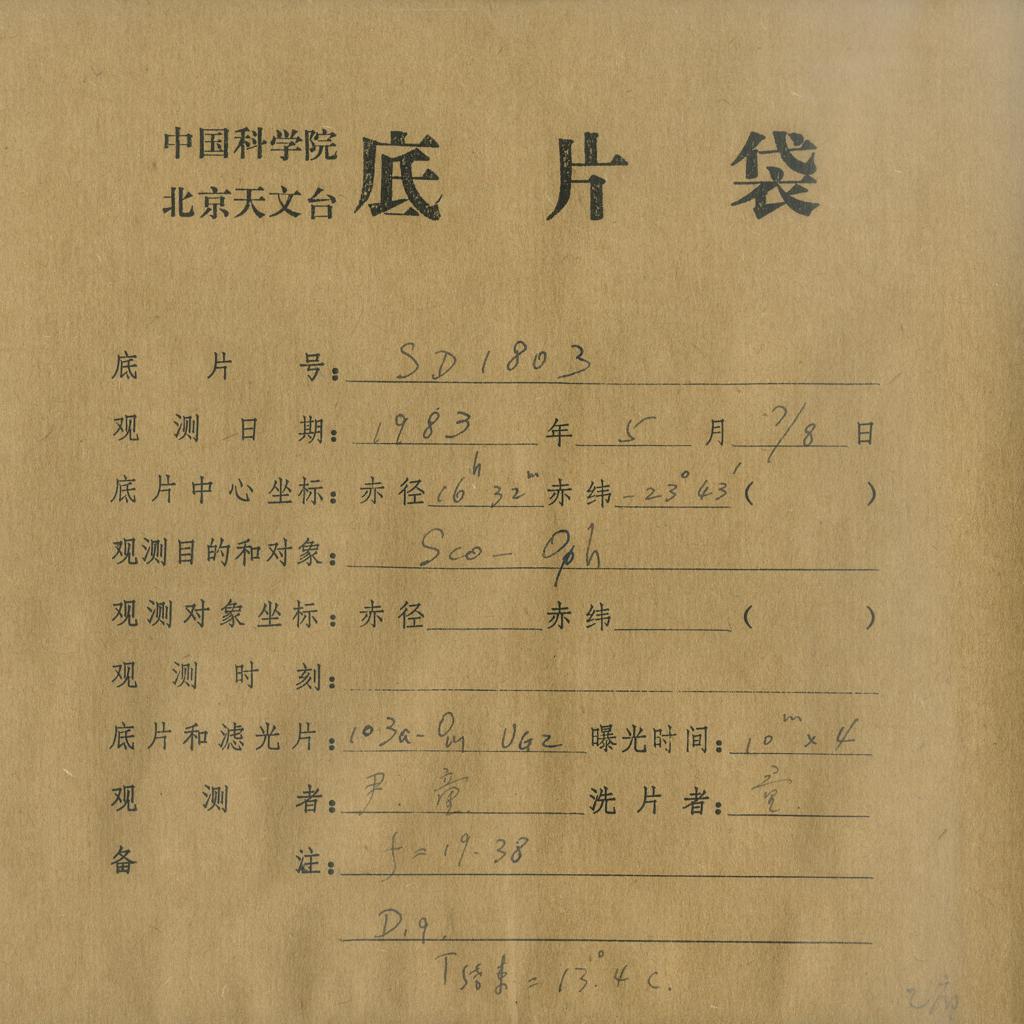 中国科学院
北京天文台
底片袋
底片号：SD 1803
观测日期：1983年5月7/8日
底片中心坐标：赤径16h 32m赤纬-23°43′（ ）
观测目的和对象：Sco - Oph
观测对象坐标：赤径 赤纬 （ ）
观测时刻：
底片和滤光片：103a-Om UG2 曝光时间：10m×4
观测者：尹.童 洗片者：童.
备注：f = 19.38
D.19.
T结束 = 13°.4 C.